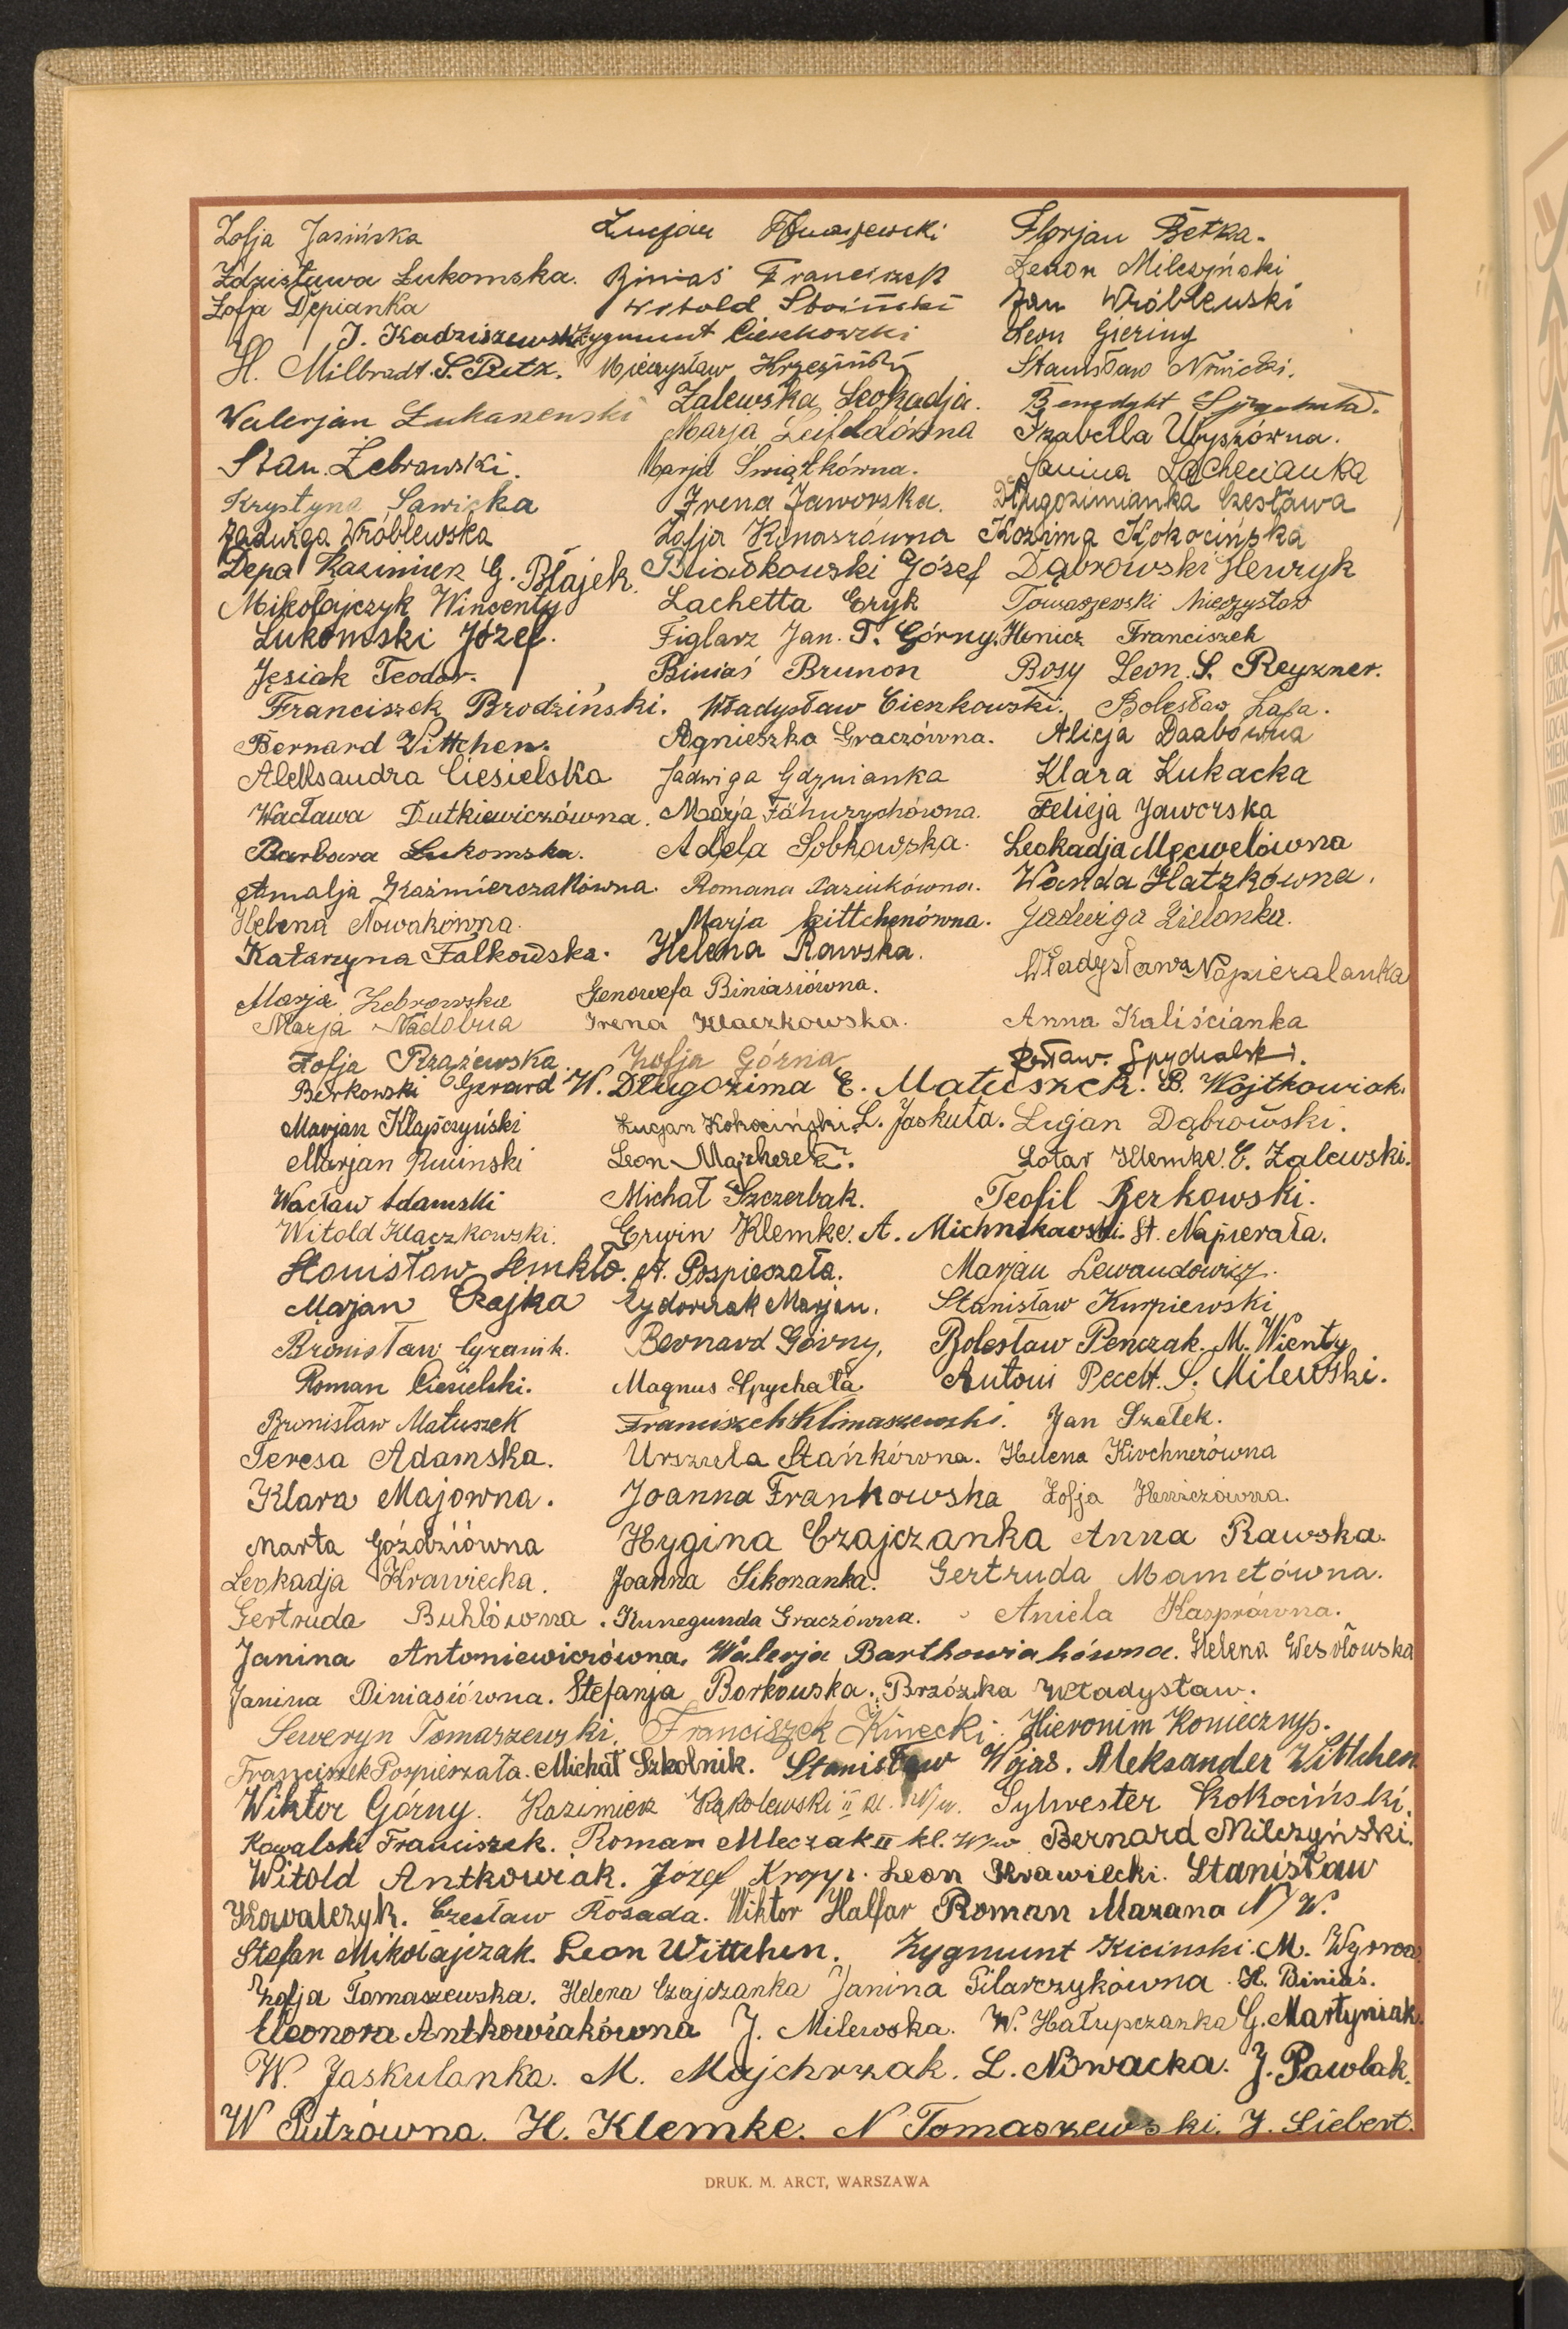 Zofja Jasińska Lucjan Florjan Betka.
Zdzisława Łukomska. Biniaś Franciszek Zenon Milczyński
Zofja Depianka Witold Jan Wróblewski
J. Kadziszewski Zygmunt Cieszkowski Leon Giering
H. Milbradt. S. Putz. Mieczysław Krzeziński Stanisław Nawicki.
Walerjan Łukaszewski Zalewska Leokadja. Benedykt
Marja Leifeldówna Izabella Ubyszówna.
Stan. Żebrawski. Marja Świątkówna. Janina Łachecianka
Krystyna Sawicka Irena Jaworska. Długozimianka Czesława
Jadwiga Wróblewska Zofja Kunaszówna Kozima Kokocińska
Depa Kazimierz G. Błajek. Białkowski Józef Dąbrowski Henryk
Mikołajczyk Wincenty Lachetta Eryk Tomaszewski Mieczysław
Łukomski Józef. Figlarz Jan. T. Górny. Henicz Franciszek
Jęsiak Teodor. Biniaś Brunon Bosy Leon. S. Reyzner.
Franciszek Brodziński. Władysław Cienkowski. Bolesław Łapa.
Bernard Wittchen. Agnieszka Graczówna. Alicja Daabówna
Aleksandra Ciesielska Jadwiga Gdznianka Klara Kukacka
Wacława Dutkiewiczówna. Marja Felicja Jaworska
Barbara Łukomska. Adela Sobkowska. Leokadja Mecwelówna
Amalja Kaźmierczakówna. Romana Paziukówna. Wanda Hatzkówna.
Helena Nowakówna. Marja Wittchenówna. Jadwiga Zielonka.
Katarzyna Falkowska. Helena Rawska.
Władysława Napieralanka
Marja Żebrowska Genowefa Biniasiówna.
Marja Nadobna Irena Klaczkowska. Anna Kaliścianka
Zofja Rzażewska. Zofja Górnia Spychalski.
Berkowski Gerard W. Długozima E. Matuszek. B. Wojtkowiak.
Marjan Klapczyński Lucjan Kokociński. L. Jaskuła. Lucjan Dąbrowski.
Marjan Rusinski Leon Majcherek. Lotar Klemke. C. Zalewski.
Wacław Adamski Michał Szczerbak. Teofil Berkowski.
Witold Klaczkowski. Erwin Klemke. A. Michnikowski. St. Napierała.
Stanisław Semkło. A. Pospieszała. Marjan Lewandowicz.
Marjan Czajka Cydorczak Marjan. Stanisław Kurpiewski
Bronisław Bernard Górny, Bolesław Penczak. M. Wienty
Roman Ciesielski. Magnus Spychała Antoni Pecelt. S. Milewski.
Bronisław Matuszek Franciszek Klimaszewski. Jan Szałek.
Teresa Adamska. Urszula Stańkówna. Helena Kirchnerówna
Klara Majówna. Joanna Frankowska Zofja Heniczówna.
Marta Góździówna Hygina Czajczanka Anna Rawska.
Leokadja Krawiecka. Joanna Sikoranka. Gertruda Mametówna.
Gertruda Buhlówna. Kunegunda Graczówna. Aniela Kasprówna.
Janina Antoniewiczówna. Walerja Barthowiakówna. Helena Wesołowska
Janina Biniasiówna. Stefanja Borkowska. Brzózka Władysław.
Seweryn Tomaszewski. Franciszek Kinecki. Hieronim Konieczny.
Franciszek Pospieszała. Michał Szkolnik. Stanisław Wojas. Aleksander Wittchen.
Wiktor Górny. Kazimierz Kąkolewski II kl. Sylwester Kokociński.
Kowalski Franciszek. Roman Mleczak II kl. Bernard Milczyński.
Witold Antkowiak. Józef Leon Krawiecki. Stanisław
Kowalczyk. Czesław Rosada. Wiktor Halfar Roman Marana N/W.
Stefan Mikołajczak. Leon Wittchen. Zygmunt Kicinski. M. Wyrwa.
Zofja Tomaszewska. Helena Czajczanka Janina Pilarczykówna. H. Biniaś.
Eleonora Antkowiakówna J. Milewska. W. Hałupczanka G. Martyniak.
W. Jaskulanka. M. Majchrzak. L. Nowacka. J. Pawlak.
W Putzówna. H. Klemke. N Tomaszewski. J. Siebert.
DRUK. M. ARCT, WARSZAWA